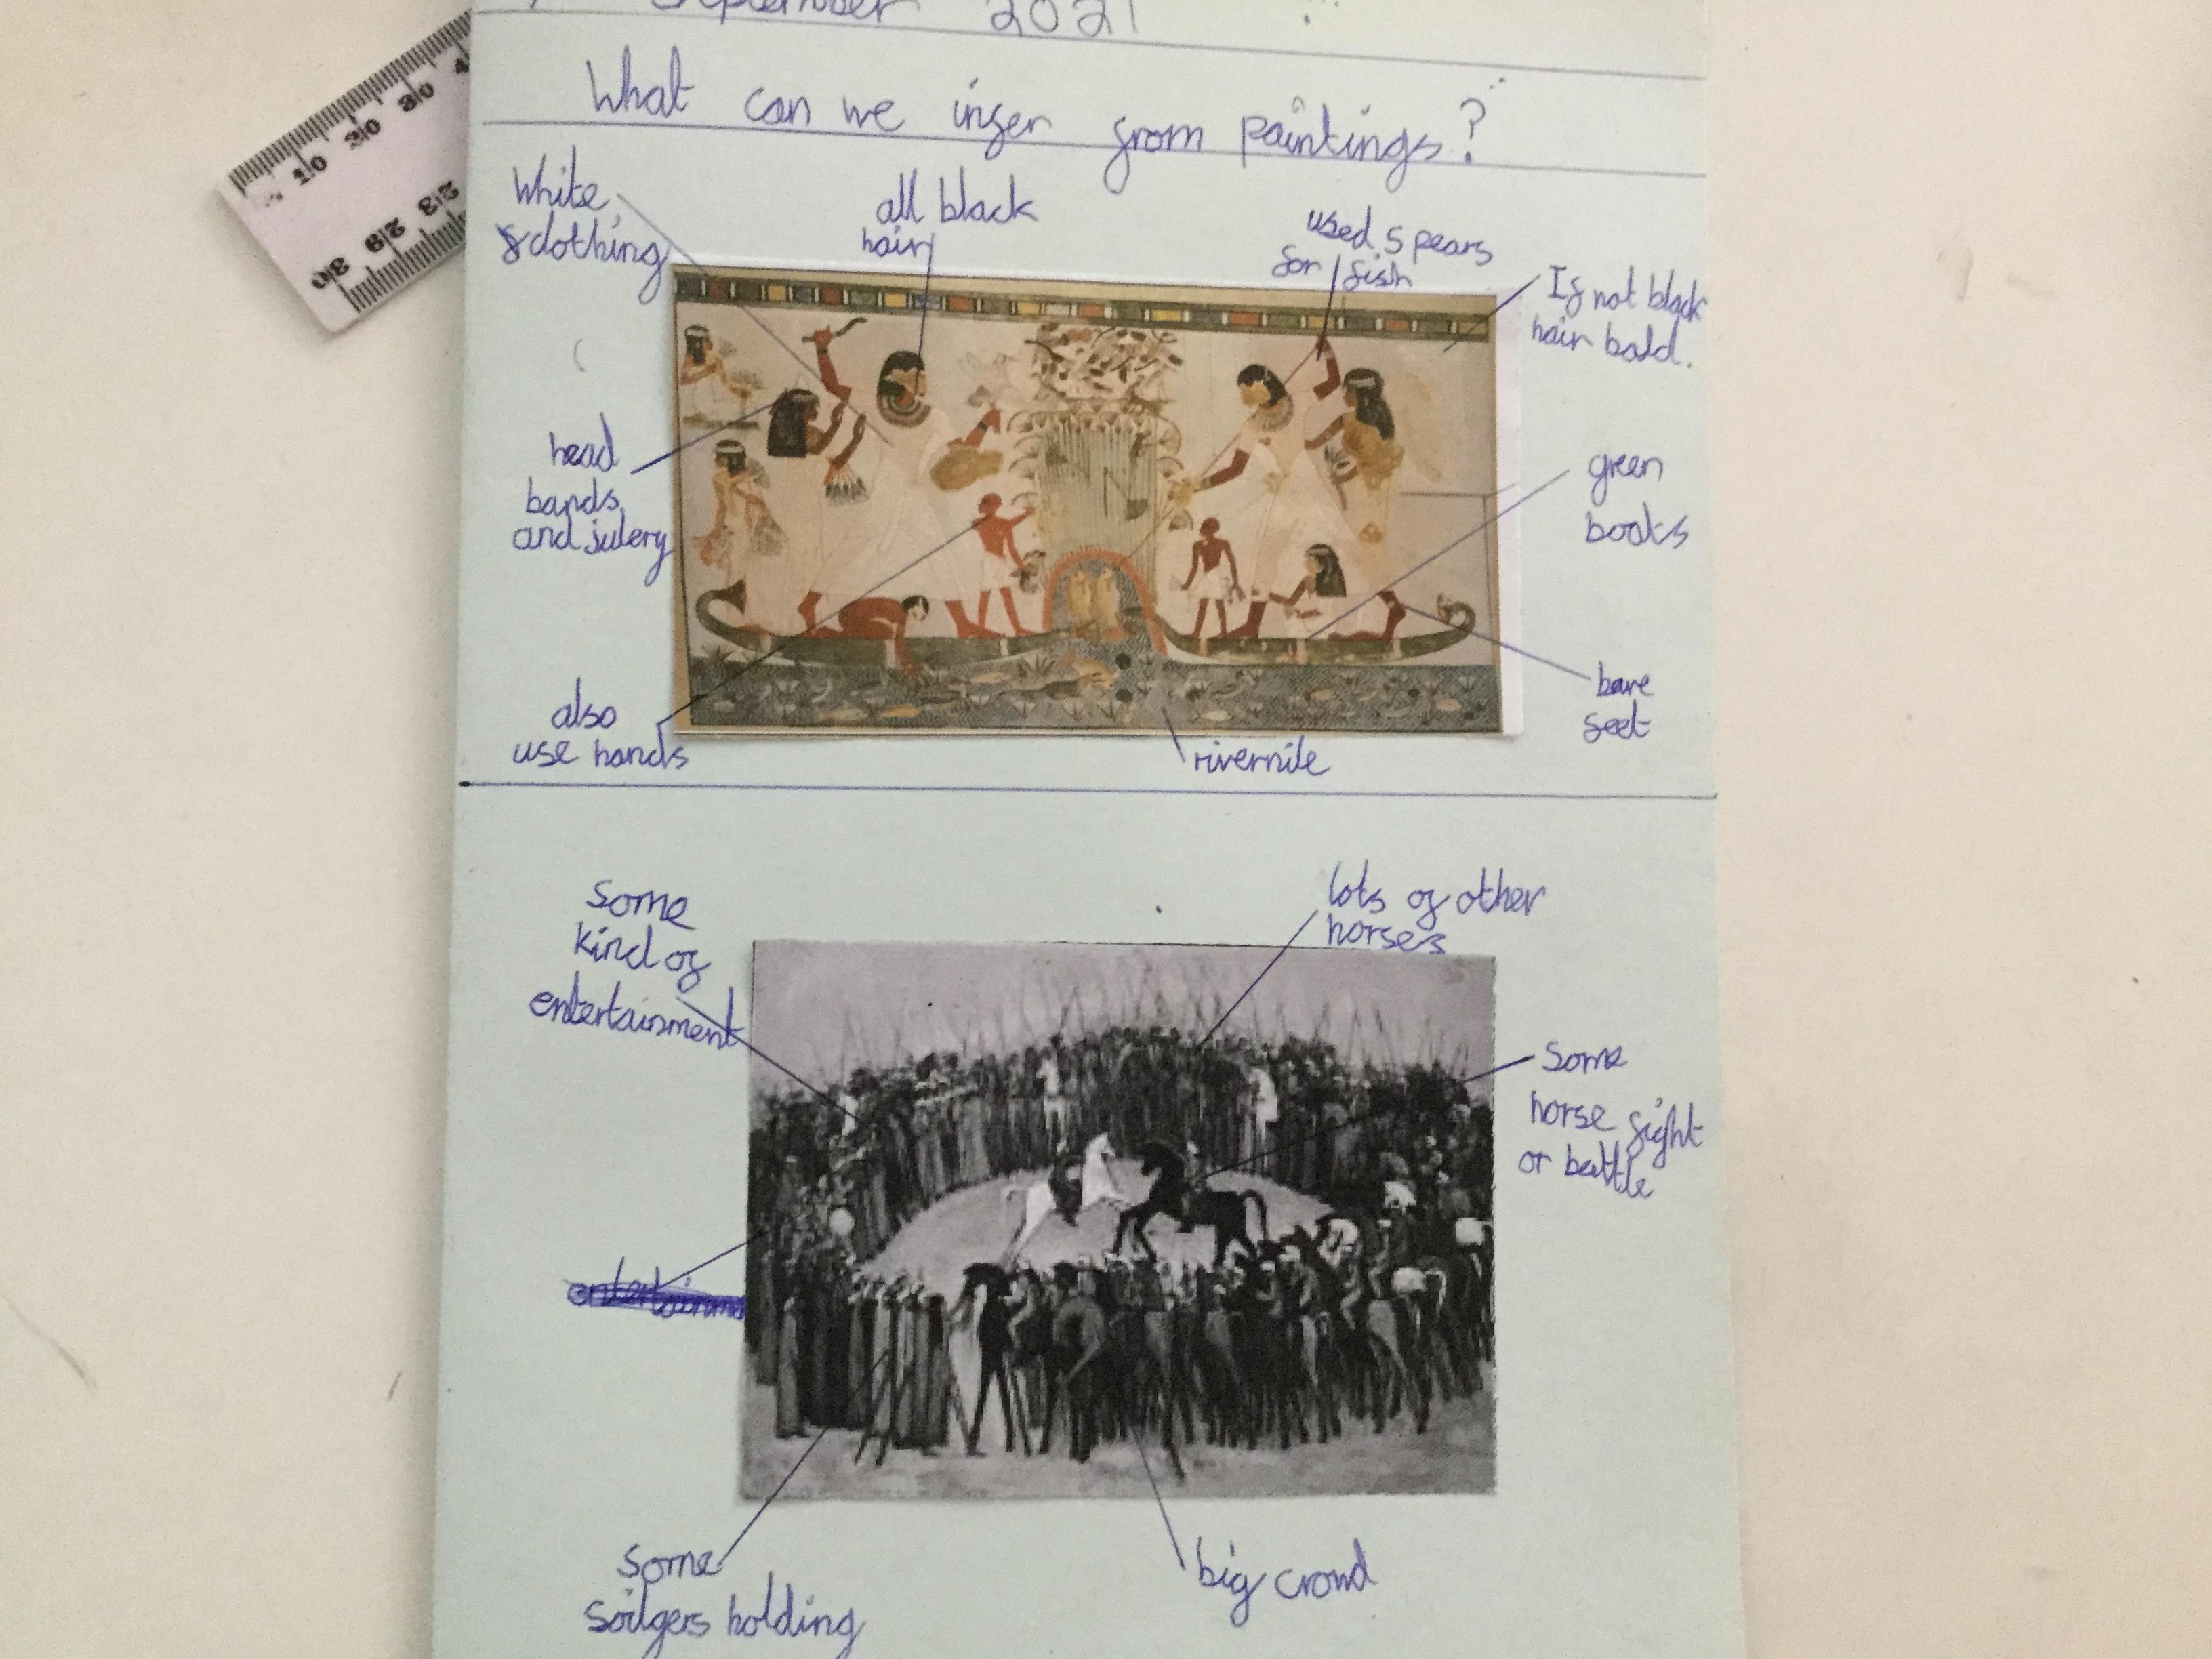 September 2021
What can we infer from paintings?
White
clothing
all black
hair
used spears
for fish
If not black
hair bald.
head
bands
and julery
green
boats
also
use hands
bare
feet
rivernile
Some
kind of
entertainment
lots of other
horses
Some
horse fight
or battle
entertainme
Some
soilgers holding
big crowd
10 20 30 4
30 29